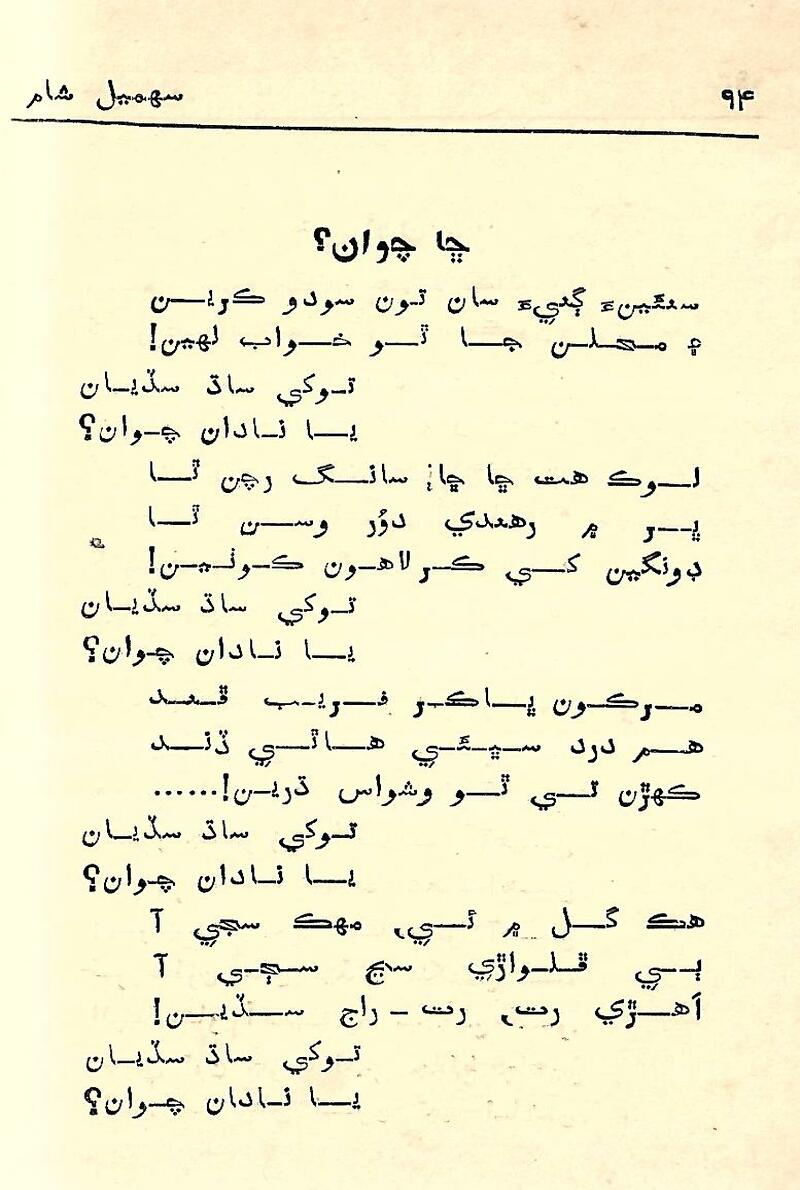 ۹۴ سهميل شام
ڇا چوان؟
سنئينءَ ڳنيءَ سان تون سودو ڪرين
۽ محلن جا ٿو خواب لهين!
توکي ساڌ سڏيان
يا نادان چوان؟
لوڪ هت ڇا ڇا، سانگ رچن ٿا
ڀر ۾ رهندي دؤر وسن ٿا
ڊونگين کي ڪرلاهون ڪوٺين!
توکي ساڌ سڏيان
يا نادان چوان؟
مرڪون ڀاڪر فريب ڦند
هم درد سڀئي هاٿي ڏند
ڪهڙن تي ٿو وشواس ڌرين!......
توکي ساڌ سڏيان
يا نادان چوان؟
هڪ گل ۾ ئي، مهڪ سڄي آ
ٻي ڦلواڙي سڃ سڃي آ
اَهڙي رت، رت - راج سڏين!
توکي ساڌ سڏيان
يا نادان چوان؟